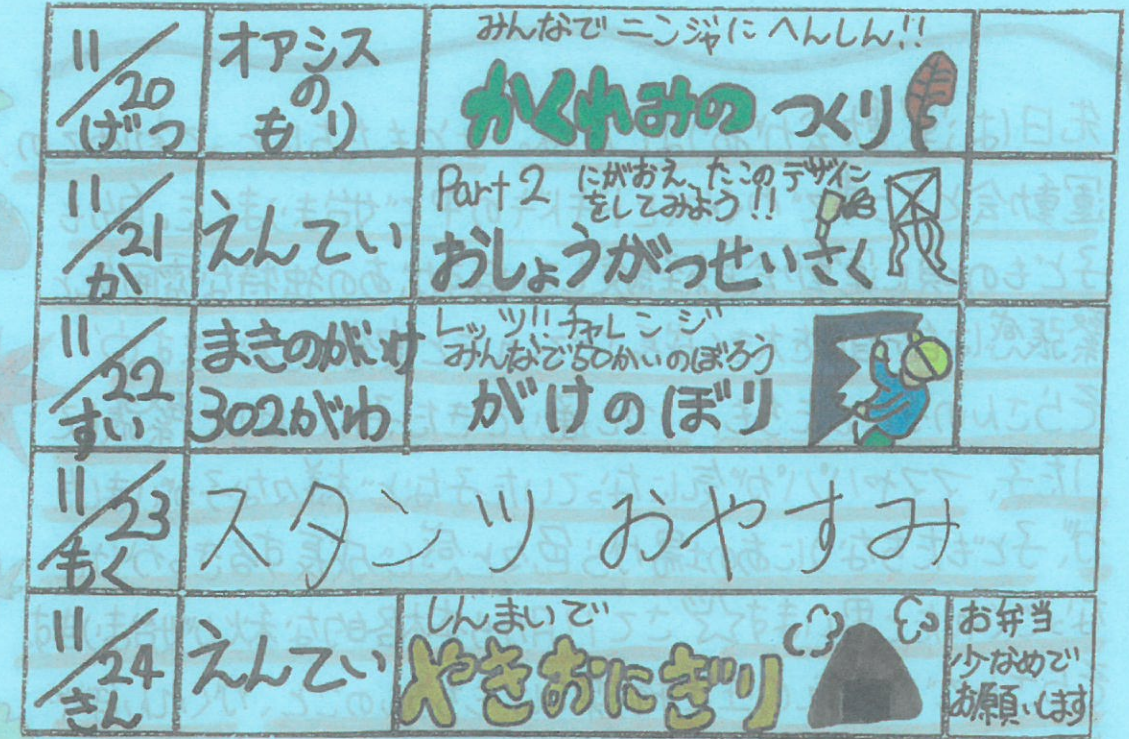 11/20
げつ
オアシス
の
もり
みんなでニンジャにへんしん!!
かくれみのつくり
11/21
か
えんてい
Part2 にがおえ、たこのデザイン
をしてみよう!!
おしょうがつせいさく
11/22
すい
まきのがいけ
302がわ
レッツ!!チャレンジ
みんなで50かいのぼろう
がけのぼり
11/23
もく
スタンツ おやすみ
11/24
きん
えんてい
しんまいで
やきおにぎり
お弁当
少なめで
お願いします